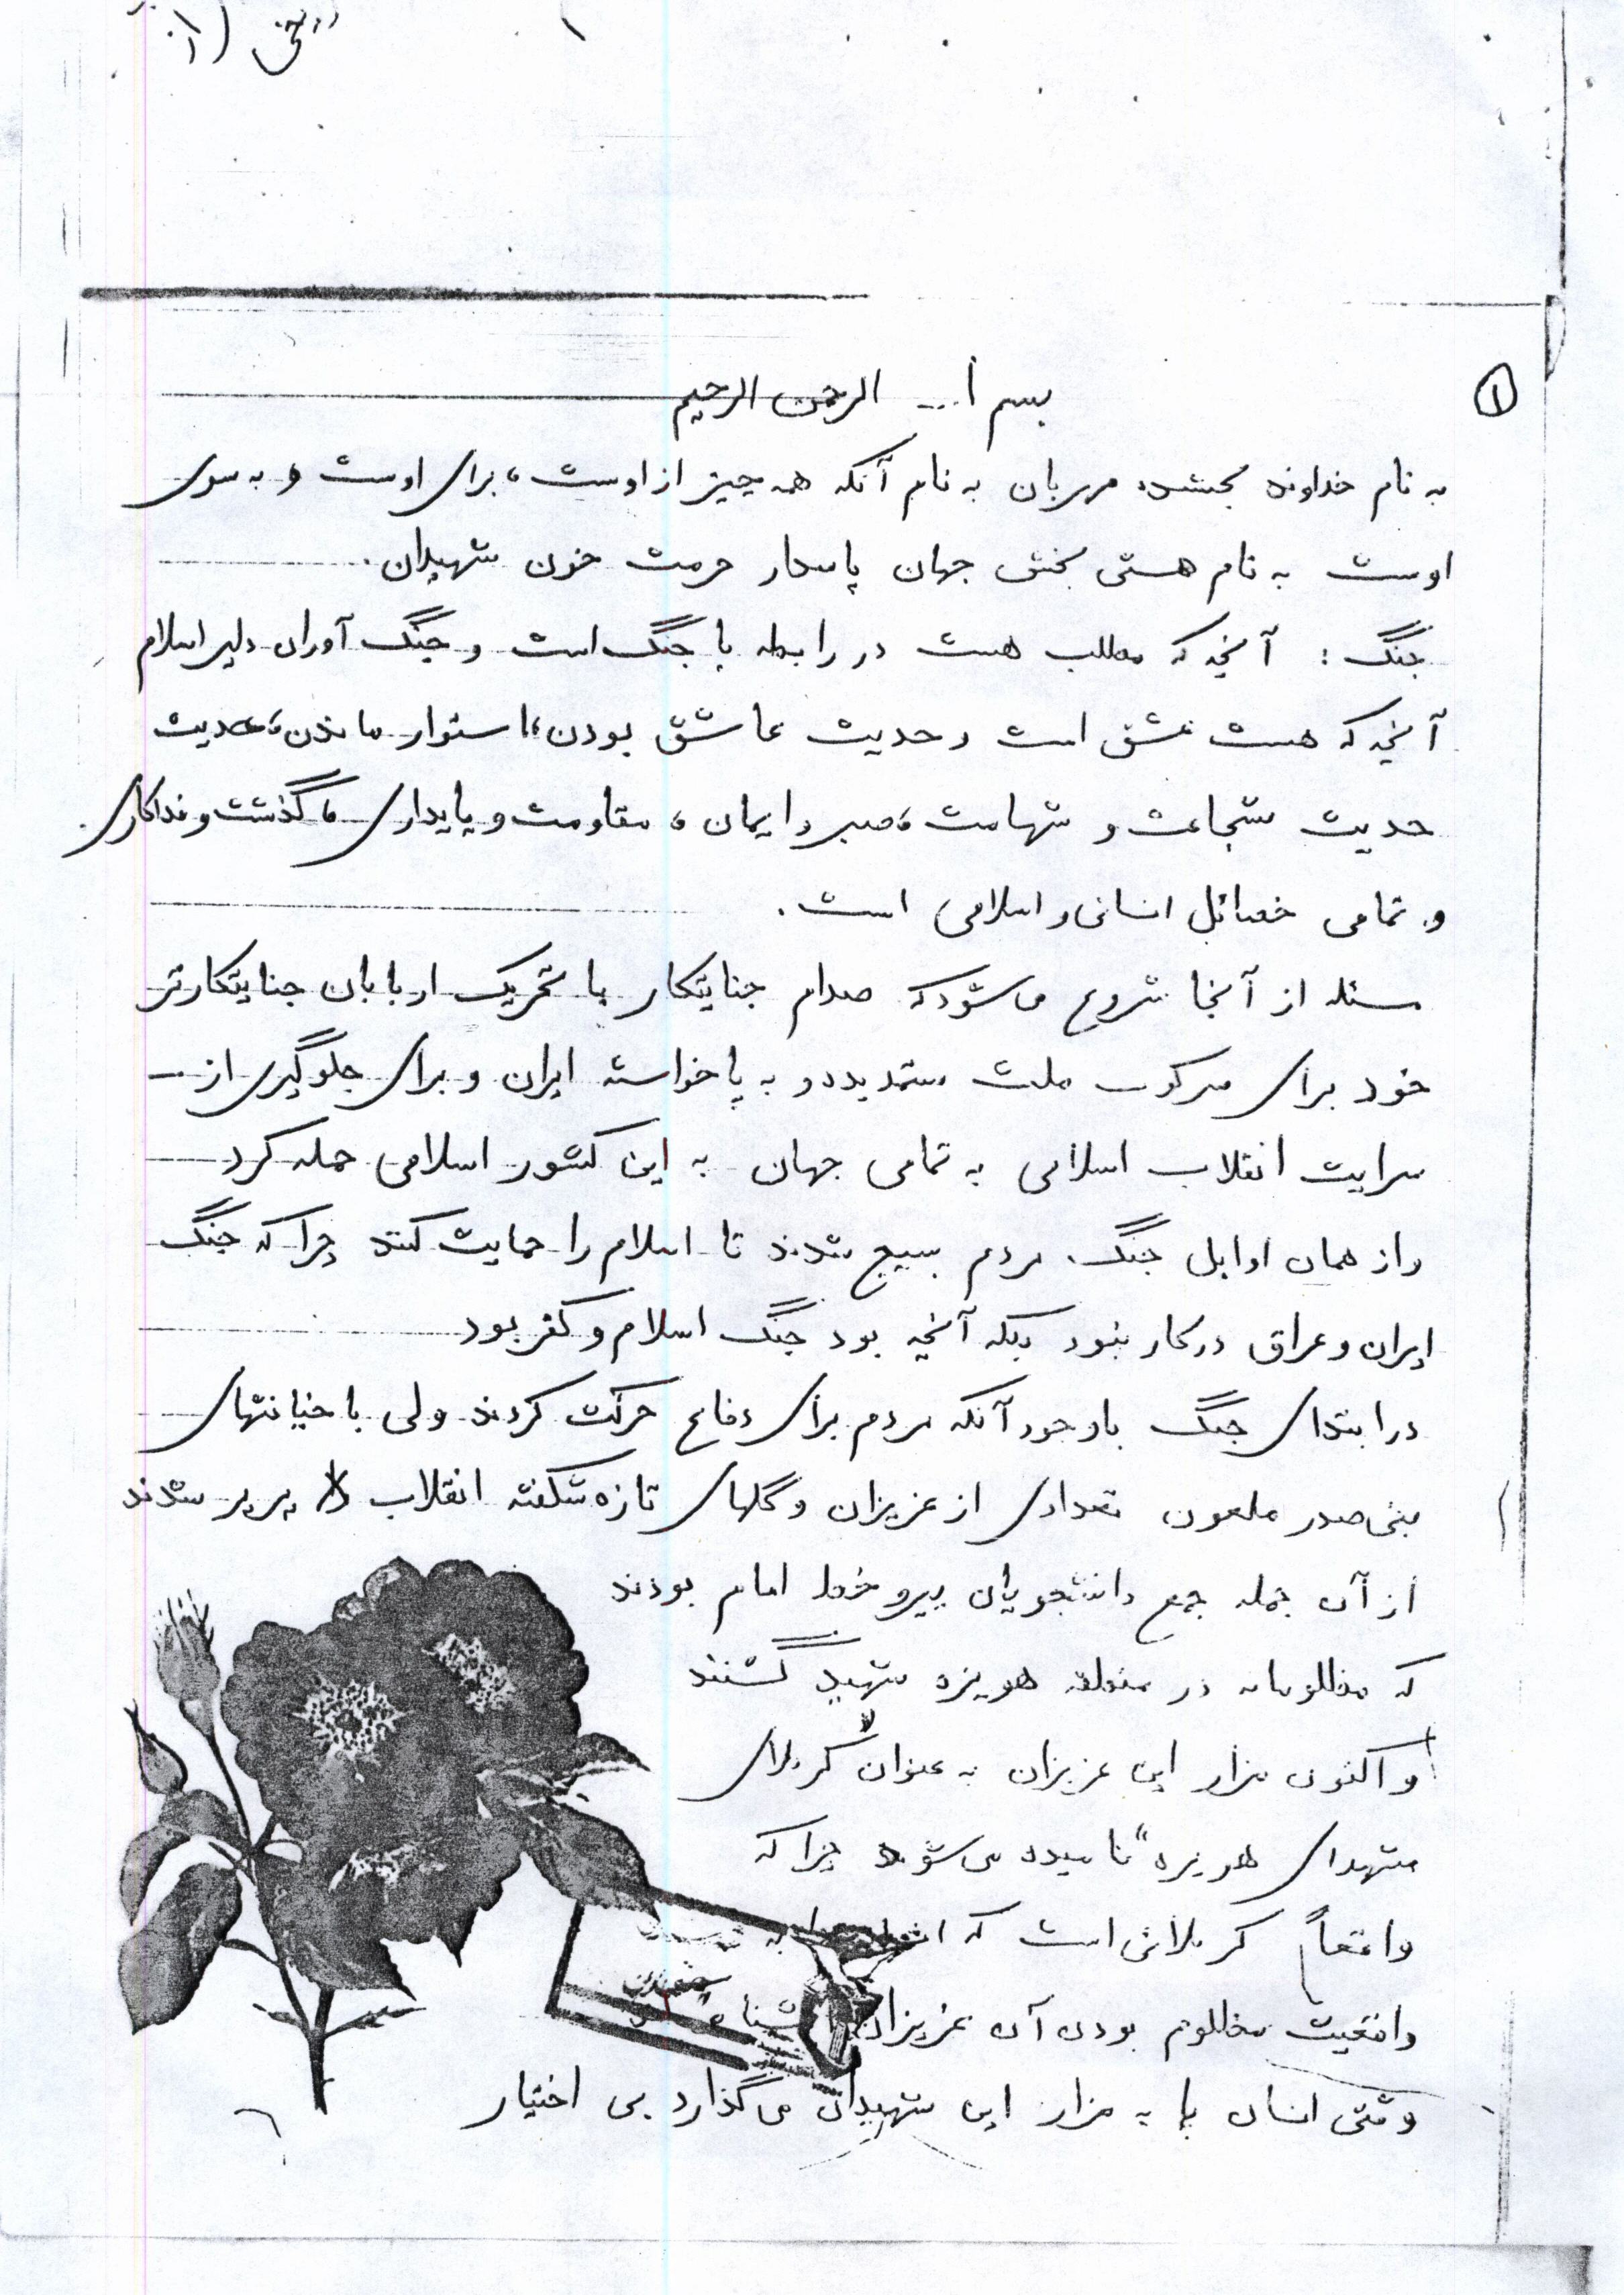 ۱
بسم ا... الرحمن الرحیم
به نام خداوند بخشنده مهربان به نام آنکه همه چیز از اوست، برای اوست و به سوی
اوست به نام هستی بخش جهان پاسدار حرمت خون شهیدان.
جنگ : آنچه که مطلب هست در رابطه با جنگ است و جنگ آوران دلیر اسلام
آنچه که هست عشق است و حدیث عاشق بودن، استوار ماندن، حدیث
حدیث شجاعت و شهامت، صبر و ایمان، مقاومت و پایداری، گذشت و فداکاری
و تمامی خصائل انسانی و اسلامی است.
مسئله از آنجا شروع می‌شود که صدام جنایتکار با تحریک اربابان جنایتکارتر
خود برای سرکوب ملت ستمدیده و به پا خواسته ایران و برای جلوگیری از
سرایت انقلاب اسلامی به تمامی جهان به این کشور اسلامی حمله کرد
و از همان اوایل جنگ مردم بسیج شدند تا اسلام را حمایت کنند چرا که جنگ
ایران و عراق در کار نبود بلکه آنچه بود جنگ اسلام و کفر بود
در ابتدای جنگ با وجود آنکه مردم برای دفاع حرکت کردند ولی با خیانتهای
بنی‌صدر ملعون تعدادی از عزیزان و گلهای تازه شکفته انقلاب پرپر شدند
از آن جمله جمع دانشجویان پیرو خط امام بودند
که مظلومانه در منطقه هویزه شهید گشتند
و اکنون مزار این عزیزان به عنوان "کربلای
شهدای هویزه" نامیده می‌شود چرا که
واقعاً کربلائی است که
واقعیت مظلوم بودن آن عزیزان
وقتی انسان پا به مزار این شهیدان می‌گذارد بی اختیار